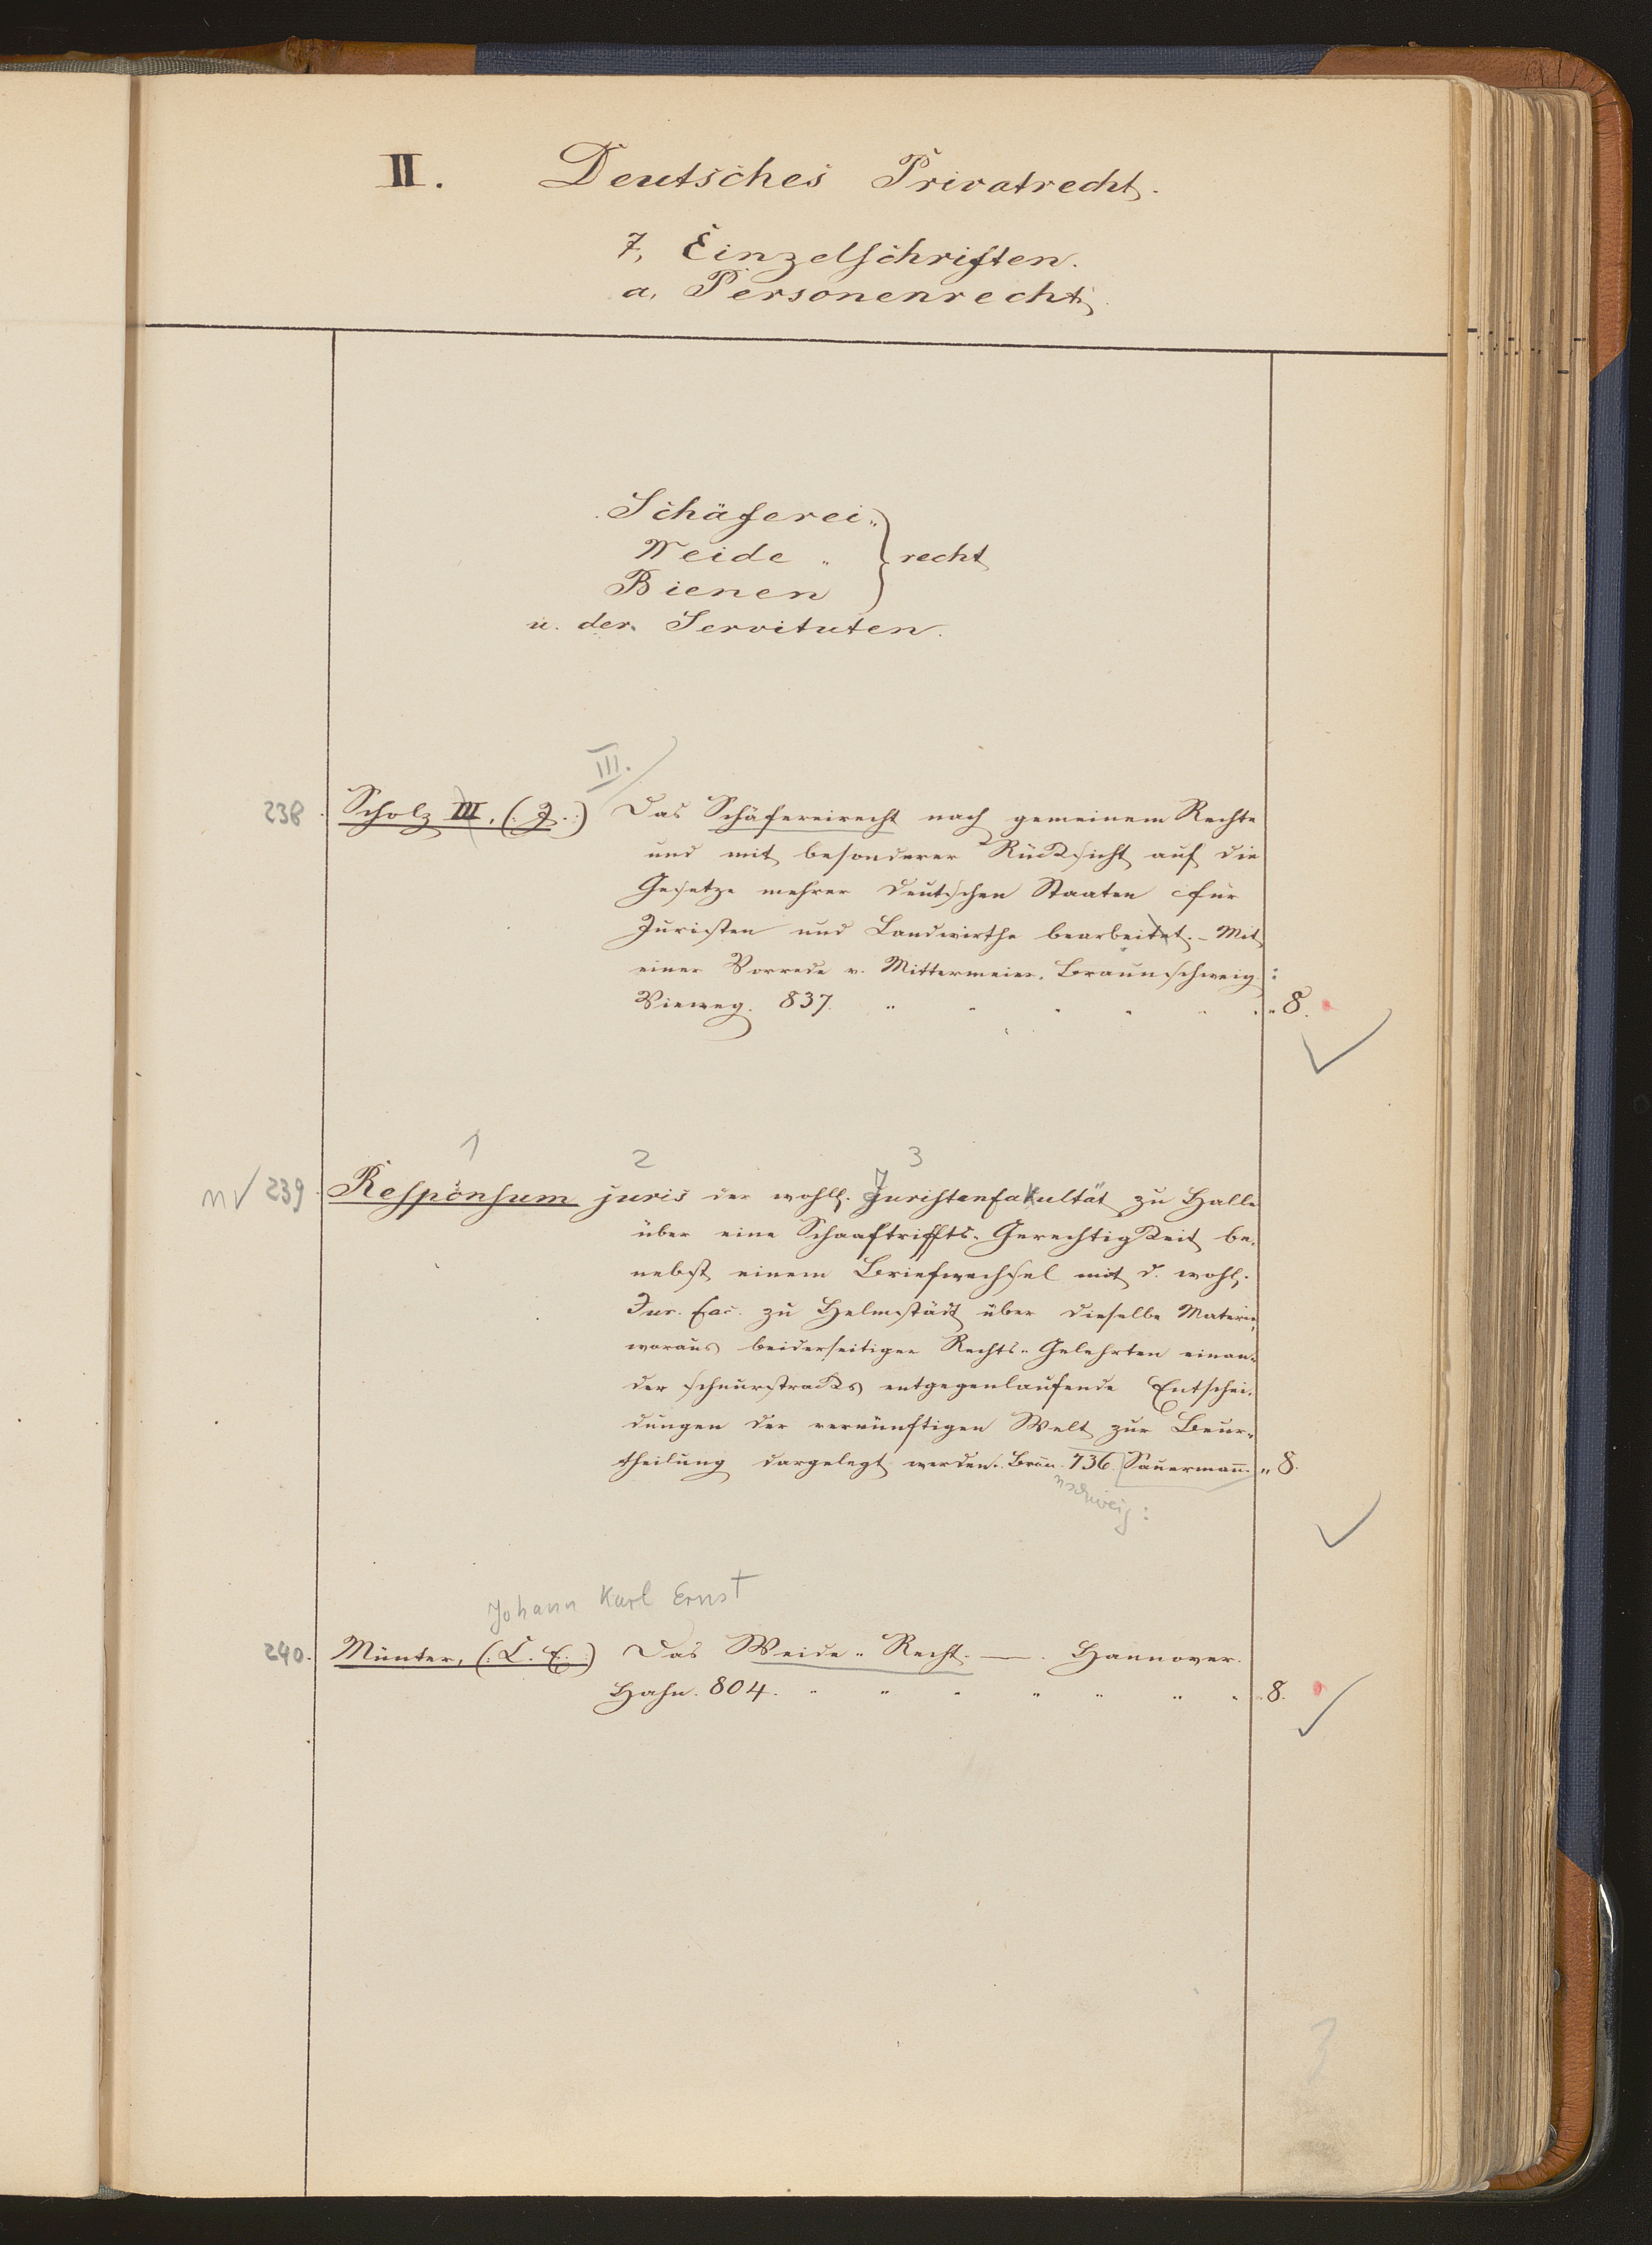 II. Deutsches Privatrecht.
7, Einzelschriften.
a, Personenrecht.
Schäferei "
Weide " } recht
Bienen
u. der Servituten.
III.
238. Scholz III, (: J. :) Das Schäfereirecht nach gemeinem Rechte
und mit besonderer Rücksicht auf die
Gesetze mehrer deutschen Staaten für
Juristen und Landwirthe bearbeitet. - Mit
einer Vorrede v. Mittermeier. Braunschweig:
Vieweg. 837. " " " " " " 8.
1 2 3
n✓ 239. Responsum juris der wohll. Juristenfakultät zu Halle
über eine Schaaftriffts-Gerechtigkeit be-
nebst einem Briefwechsel mit d. wohl.
Jur. Fac. zu Helmstädt über dieselbe Materie,
woraus beiderseitiger Rechts-Gelehrten einan-
der schnurstracks entgegenlaufende Entschei-
dungen der vernünftigen Welt zur Beur-
theilung dargelegt werden. Braun. 736. Sauermann. " 8.
nschweig:
Johann Karl Ernst
240. Münter, (: C. E. :) Das Weide-Recht. — . Hannover.
Hahn. 804. " " " " " " " 8.
3